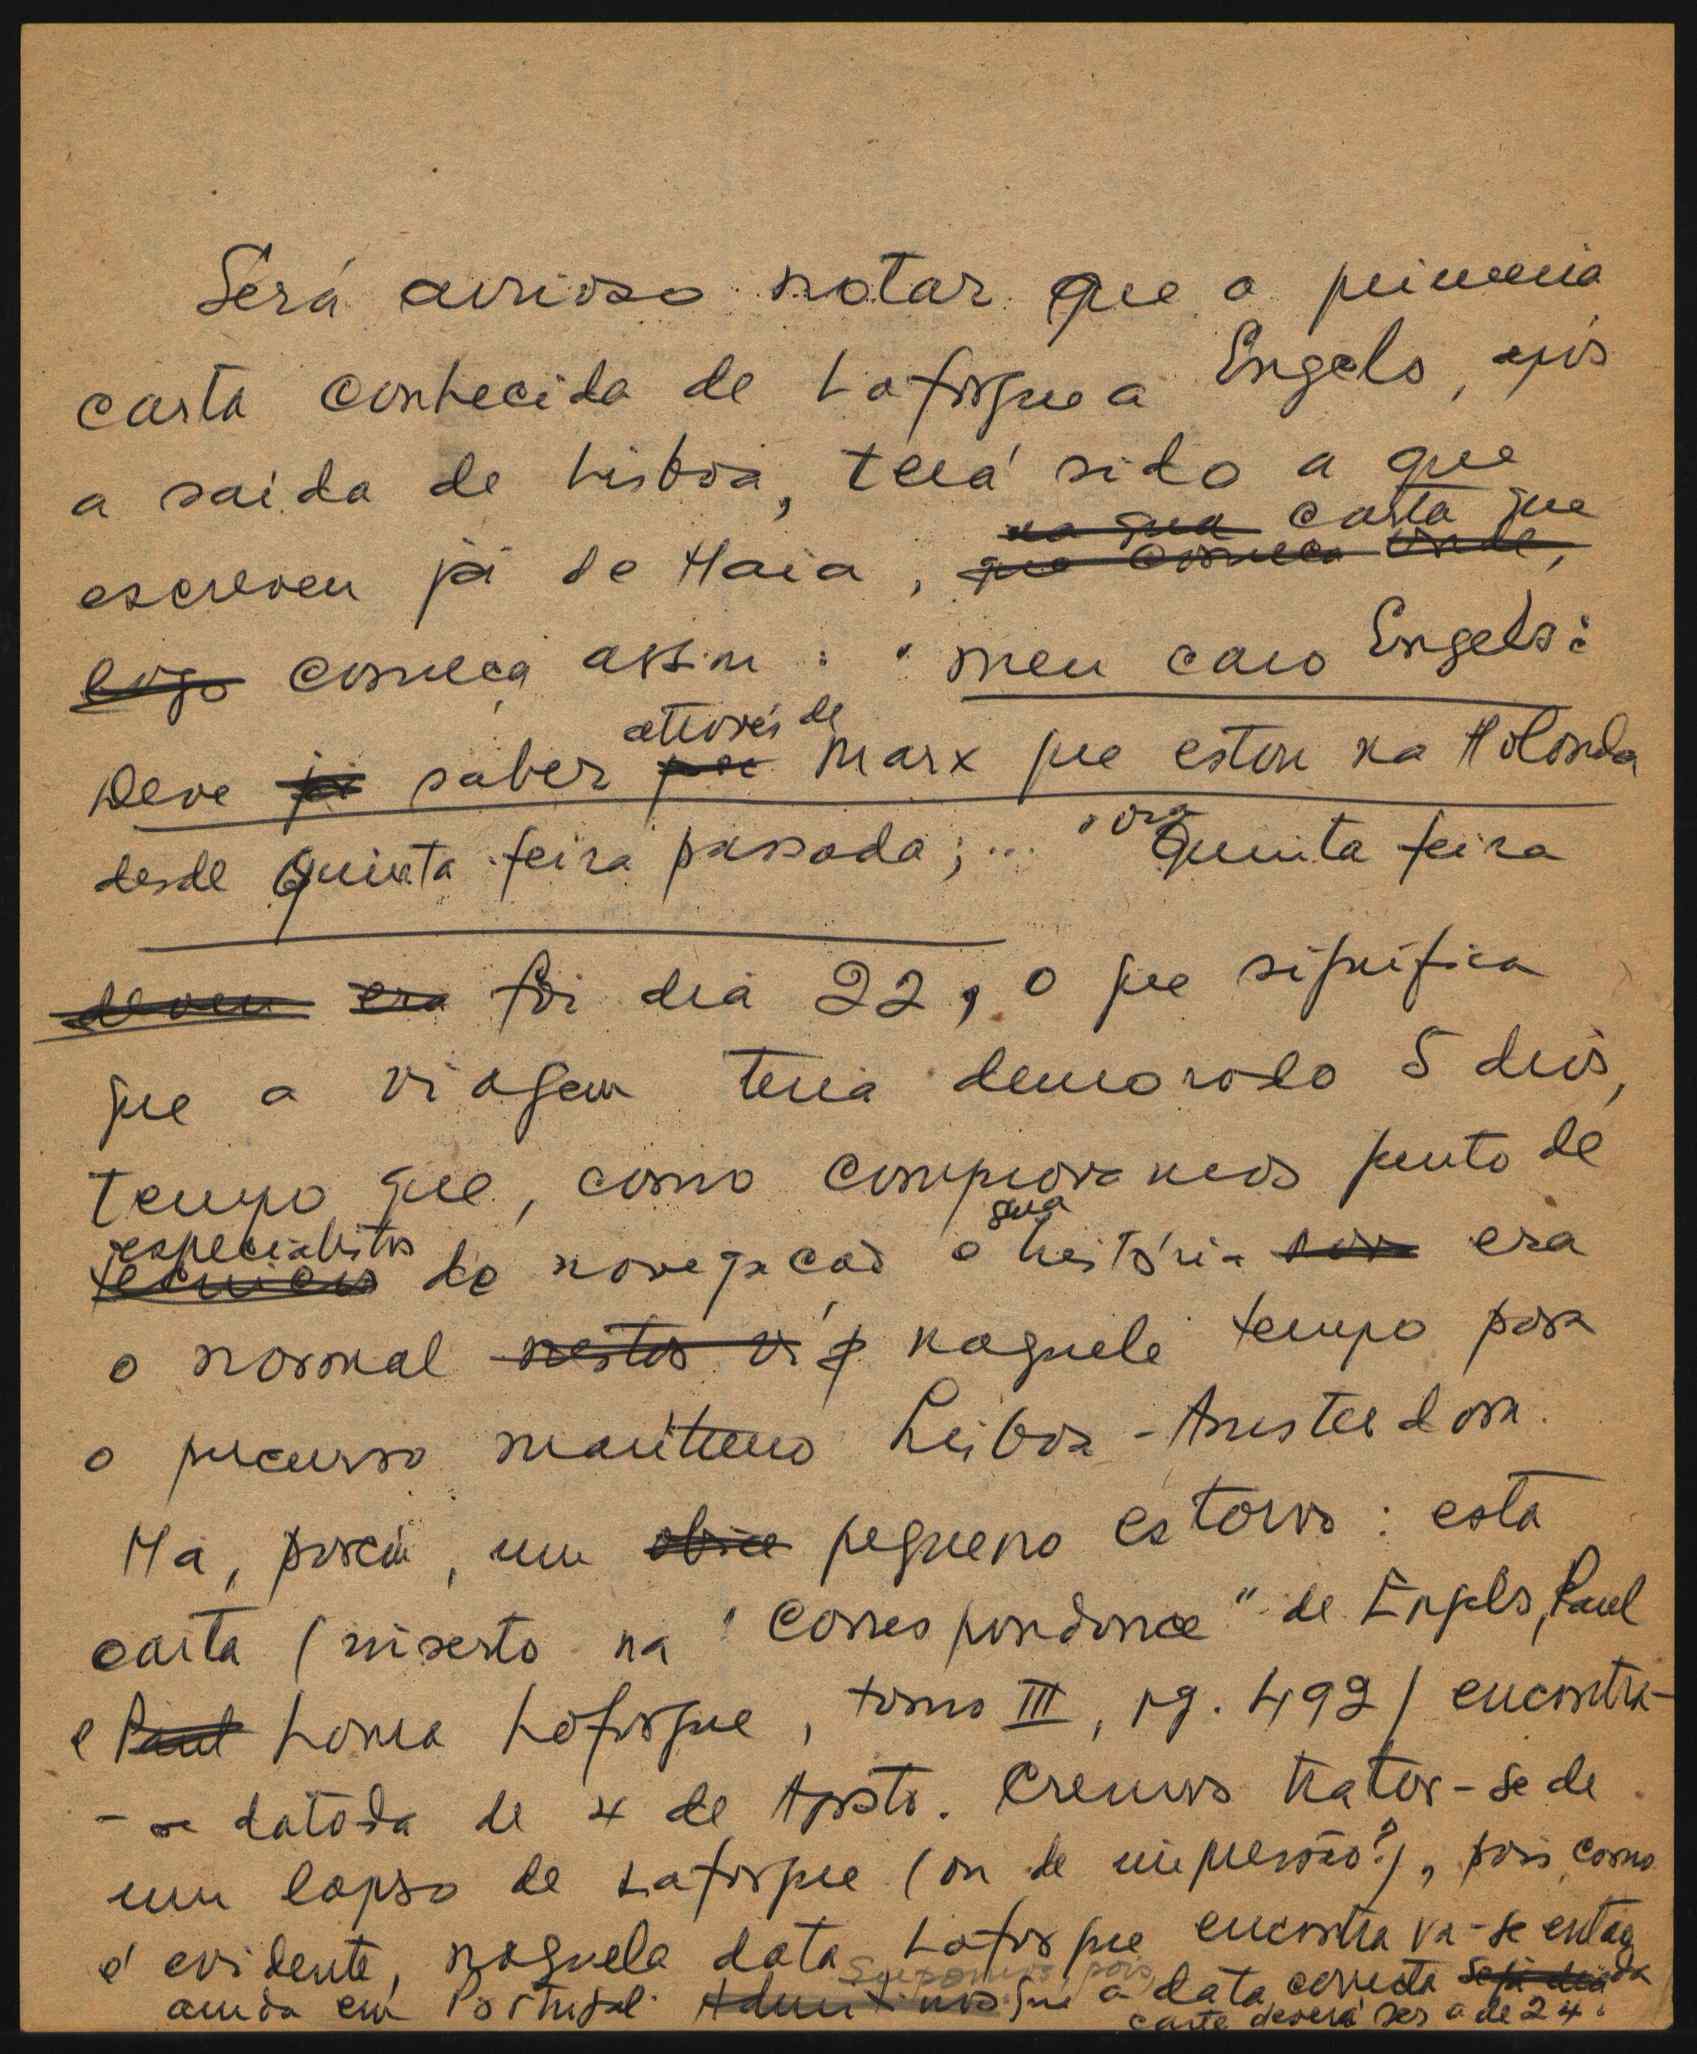 Será curioso notar que a primeira
carta conhecida de Lafargue a Engels, após
a saída de Lisboa, terá sido a que
na qua carta que
escreveu já de Haia, que começa onde,
logo começa assim: "meu caro Engels:
através de
Deve já saber por Marx que estou na Holanda
desde Quinta feira passada;..." ora Quinta feira
deveu era foi dia 22, o que significa
que a viagem teria demorado 5 dias,
tempo que, como comprovamos junto de
especialistas sua
técnicos de navegação e história era
o normal nestas vi naquele tempo para
o percurso marítimo Lisboa - Amsterdam.
Há, porém, um obice pequeno estorvo: esta
carta (inserta na "Correspondance" de Engels, Paul
e Paul Laura Lafargue, tomo III, pg. 492) encontra-
-se datada de 4 de Agosto. Cremos tratar-se de
um lapso de Lafargue (ou de impressão?), pois, como
é evidente, naquela data Lafargue encontrava-se então
Supomos, pois,
ainda em Portugal. Admitimos que a data correcta seja dia da
carta deverá ser a de 24.